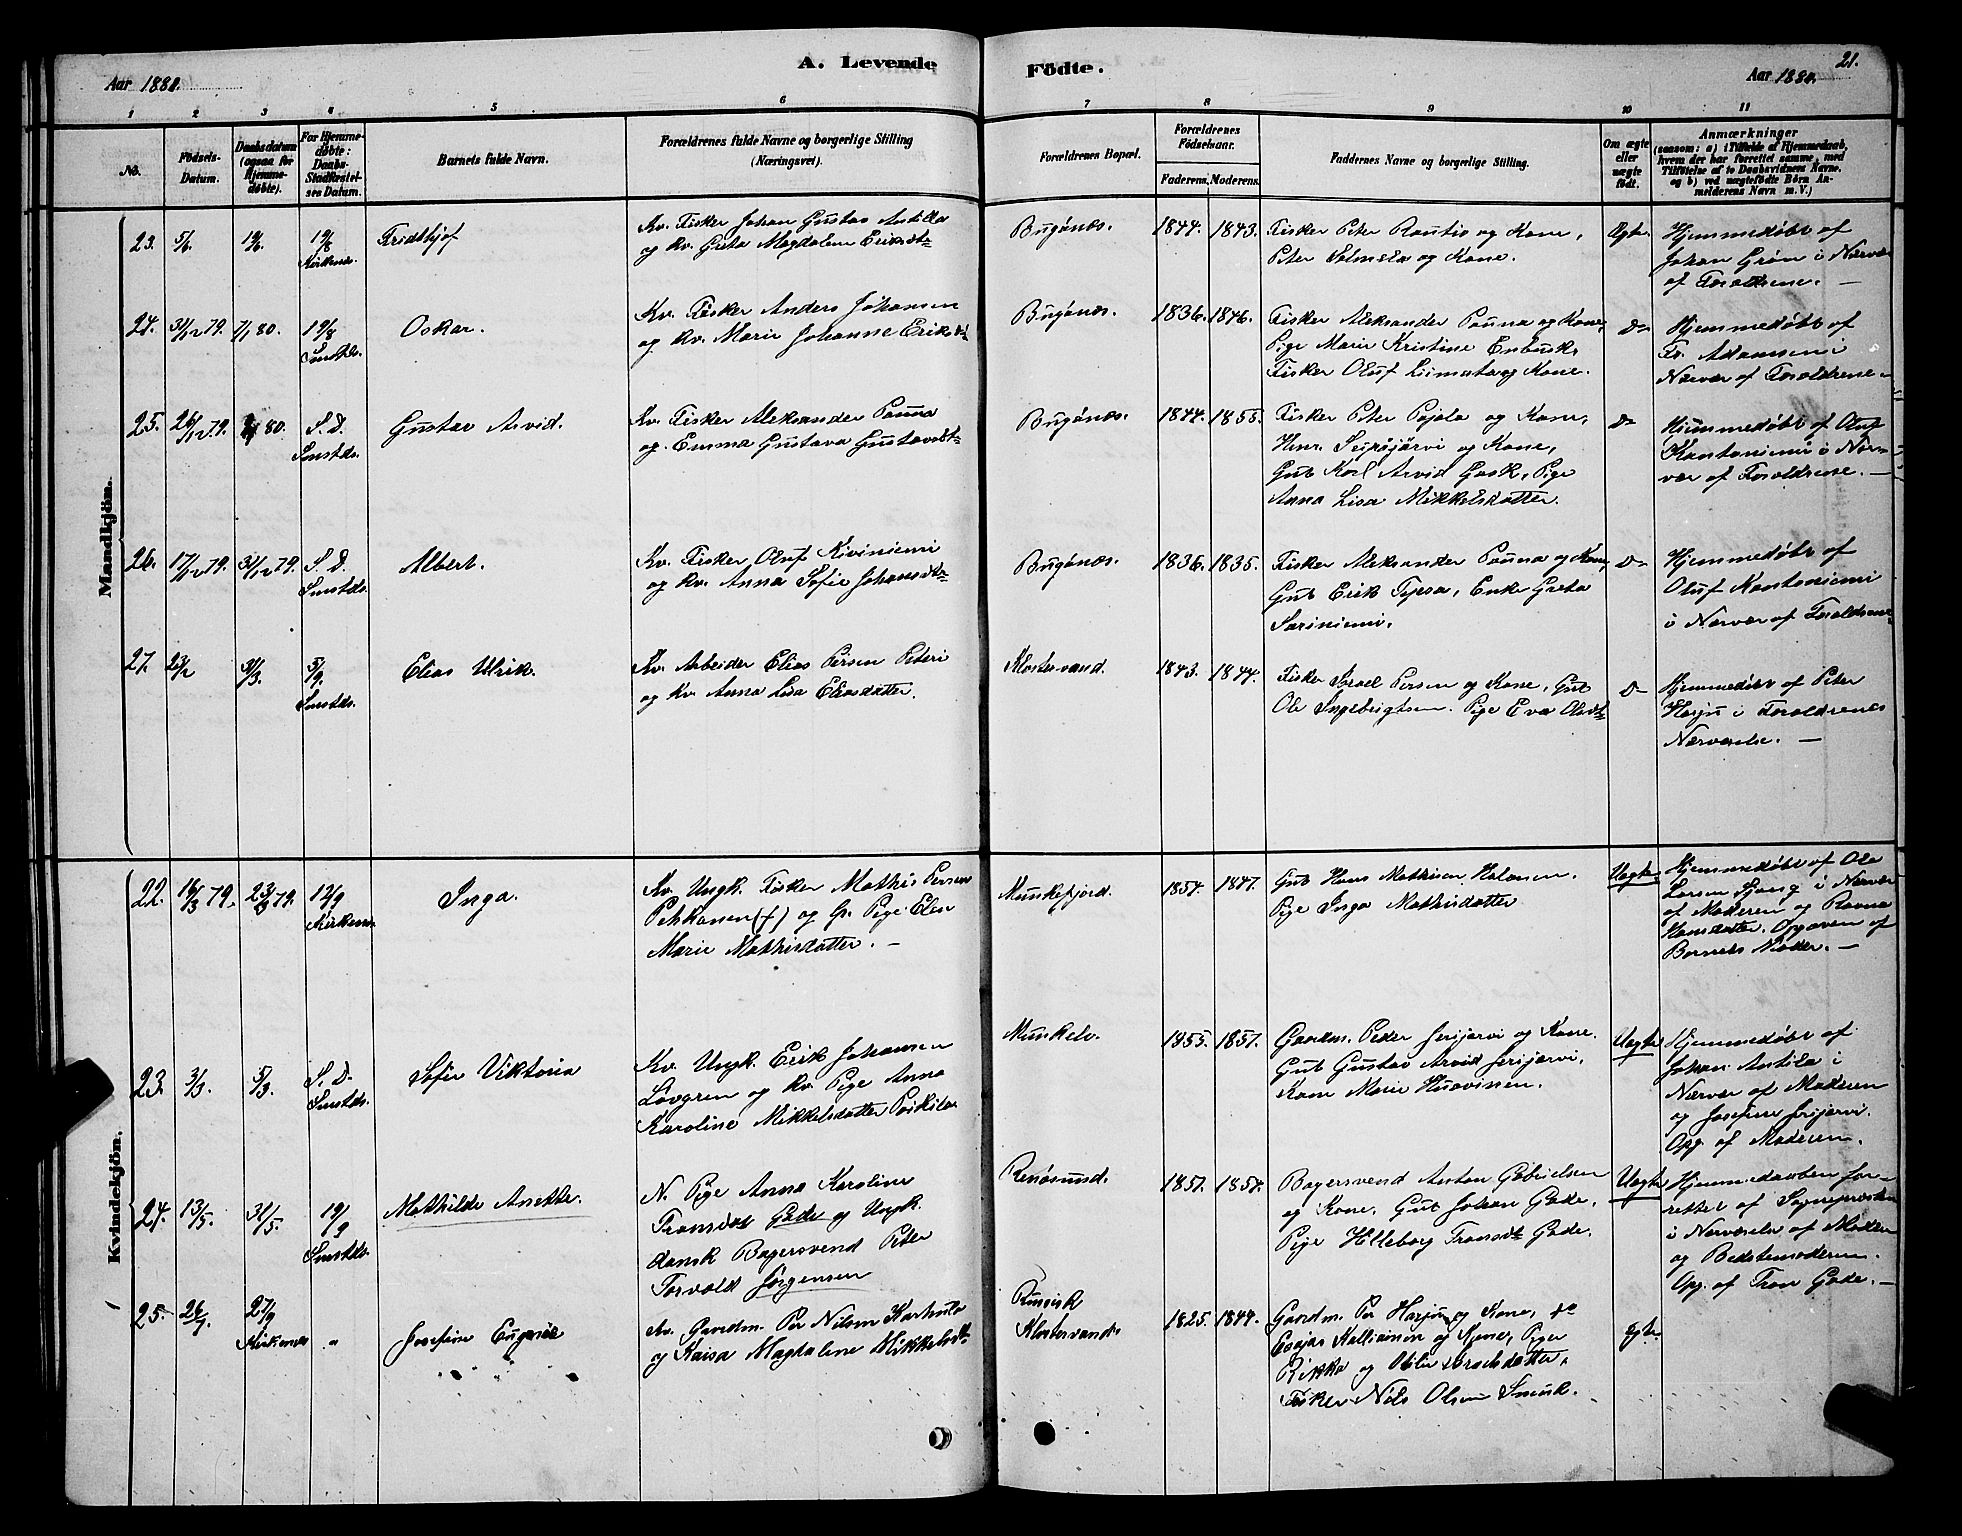 Aar 1880.
A. Levende
Födte.
Aar 1880.
21.
1 2 3 4 5 6 7 8 9 10 11
No.
Födsels-
Datum.
Daabsdatum
(ogsaa for
Hjemme-
døbte).
For Hjemme-
døbte:
Daabs
Stadfæstel-
ses Datum.
Barnets fulde Navn.
Forældrenes fulde Navne og borgerlige Stilling
(Næringsvei).
Forældrenes Bopæl.
Forældrenes
Födselsaar.
Faderens. Moderens.
Faddernes Navne og borgerlige Stilling.
Om ægte
eller
uægte
födt.
Anmærkninger
(saasom: a) i Tilfælde af Hjemmedaab,
hvem der har forrettet samme, med
Tilföielse af to Daabsvidners Navne.
og b) ved uægtefödte Börn An-
melderens Navn m. V.)
Mandkjön.
23. 5/6. 19/8 Kirkenæs Fridthjof
Kv. Fisker Johan Gustav Antilla
og Kv. Greta Magdalena Eriksdt.
Bugönæs. 1844. 1843.
Fisker Peter Rautio og Kone,
Peter Salmela og Kone.
Ægte.
Hjemmedøbt af
Johan Grön i Nærvær
af Forældrene. —
24. 31/12 79. 7/1 80. 19/8 Smstds. Oskar.
Kv. Fisker Anders Johansen
og Kv. Marie Johanne Eriksdt.
Bugönæs. 1836. 1846.
Fisker Aleksander Pauna og Kone,
Pige Marie Kristine Enbusk,
Fisker Oluf Liimata og Kone.
Do
Hjemmedøbt af
Fr. Adamsen i
Nærvær af Forældrene.
25. 26/12 79. 80. S. D. Smstds. Gustav Arvid.
Kv. Fisker Aleksander Pauna
og Emma Gustava Gustavsdt.
Bugönæs. 1844. 1855.
Fisker Peter Pajala og Kone,
Henr. Seipäjärvi og Kone,
Gut Karl Arvid Gask, Pige
Anna Lisa Mikkelsdatter.
Do
Hjemmedøbt af Oluf
Kantoniemi i Nær-
vær af Forældrene. —
26. 17/12 79. 31/12 79. S. D. Smstds. Albert.
Kv. Fisker Oluf Kiviniemi
og Kv. Anna Sofie Johansdt.
Bugönæs. 1836. 1835.
Fisker Aleksander Pauna og Kone,
Gut Erik Tepsa, Enke Greta
Sariniemi.
Do
Hjemmedøbt af
Oluf Kantoniemi
i Nærvær af Forældrene
27. 23/2 31/3. 5/9. Smstds. Elias Ulrik.
Kv. Arbeider Elias Persen Peteri
og Kv. Anna Lisa Eliasdatter.
Klostervand. 1843. 1844.
Fisker Israel Persen og Kone, Gut
Ole Ingebrigtsen. Pige Eva Olsdt.
Do
Hjemmedøbt af Peter
Harju i Forældrenes
Nærværelse. —
Kvindekjön.
22. 16/3 79. 23/3 79. 12/9 Kirkenæs Inga.
Kv. Ungk. Fisker Mathis Persen
Pehkonen (+) og Gr. Pige Elen
Marie Mathisdatter. —
Munkefjord. 1854. 1847.
Gut Hans Mathisen Halonen.
Pige Inga Mathisdatter
Uægte
Hjemmedøbt af Ole
Larsen Bjang i Nærvær
af Moderen og Ravna
Hansdatter. Opgaven af
Barnets Moder. —
23. 3/3. 5/3. S. D. Smstds. Sofie Viktoria
Kv. Ungk. Erik Johansen
Lövgren og Kv. Pige Anna
Karoline Mikkelsdatter Poikila
Munkelv. 1855. 1857.
Gaardm. Peder Jerijärvi og Kone.
Gut Gustav Arvid Jerijärvi,
Kone Marie Huovinen.
Uægte
Hjemmedøbt af
Johan Antila i
Nærvær af Moderen
og Josefine Jerijärvi.
Opg. af Moderen.
24. 13/5. 31/5. 19/9 Smstds. Mathilde Anette.
N. Pige Anna Karoline
Tronsdat. Gade og Ungk.
dansk Bagersvend Peter
Torvald Jørgensen
Renösund. 1857. 1854.
Bagersvend Anton Gabrielsen
og Kone, Gut Johan Gade,
Pige Helleborg Tronsdt. Gade.
Uægte
Hjemmedaaben for-
rettet af Sognepræsten
i Nærværelse af Moderen
og Bedstemoderen.
Opg. af Tron Gade. —
25. 26/7. 27/9 Kirkenæs " Josefine Eugenie
Kv. Gaardm. Per Nilsen Karhula
og Kaisa Magdalena Mikkelsdt.
Russisk
Klostervand. 1825. 1844.
Gaardm. Per Harju og Kone, do
Esajas Kalliainen og Kone, Piger
Rikka og Otilie Israelsdatter,
Fisker Nils Olsen Smuk.
Ægte.